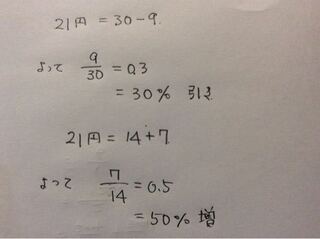 21円 = 30 - 9.
よって 9/30 = 0.3
= 30% 引き
21円 = 14 + 7
よって 7/14 = 0.5
= 50% 増